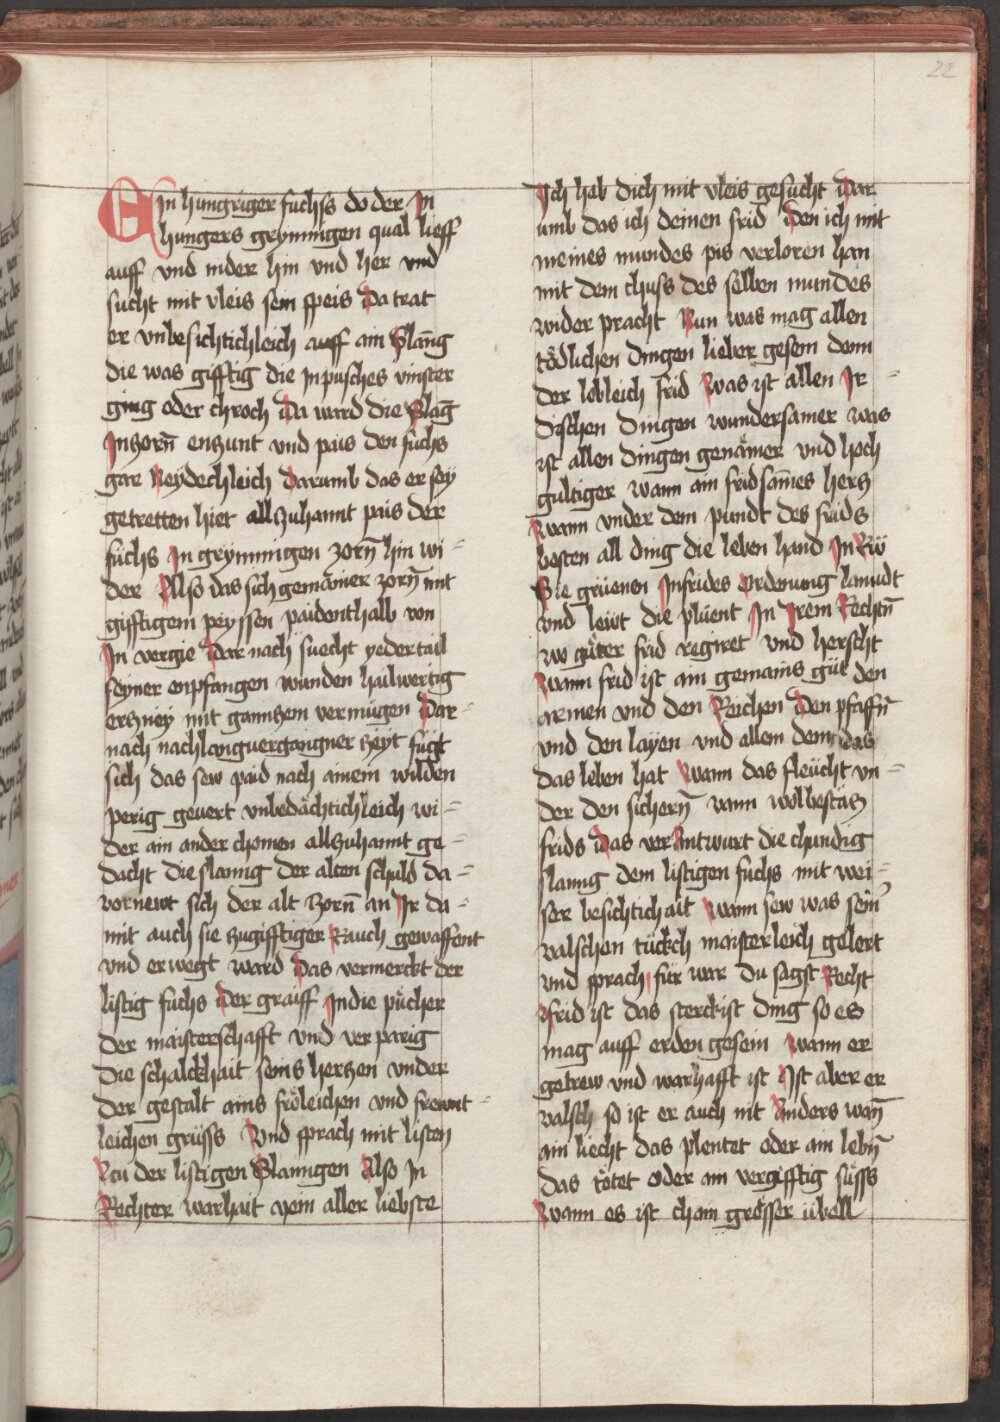 22
Ein hungriger fuchss do der In
hungers grymmigen qual lieff
auff vnd nider hin vnd her vnd
sucht mit vleis sein speis Da trat
er vnbesichtichleich auff ain Slang
die was gifftig die In pusches vinster
ging oder chroch Da ward die Slāg
In zorn̄ enzunt vnd pais den fuchs
gar Neydechleich Darumb das er sey
getretten hiet allzuhannt pais der
fuchs In grymmigen zorn̄ hin wi-
der Also das sich gemainer zorn̄ mit
gifftigem peyssen paidenthalb von
In vergie Dar nach suecht yeder tail
seyner enpfangen wunden hailwertig
erzney mit gannzem vermugen Dar-
nach nachlangvergangner zeyt fügt
sich das sew paid nach ainem wilden
perig geuert vnbedächtichleich wi-
der ain ander chomen allzuhannt ge-
dacht die slanng der alten schuld da-
vornewt sich der alt zorn̄ an Ir da-
mit auch sie zugifftiger Rauch gewaffent
vnd erwegt ward Das vermerckt der
listig fuchs Der graiff In die pücher
der maisterschafft vnd verparig
die schalckhait seins herzen vnder
der gestalt ains fröleichen vnd frewnt-
leichen grüss Vnd sprach mit listen
Zcu der listigen Slanngen Also In
Rechter warhait mein aller liebste
Ich hab dich mit vleis gesucht Dar
umb das ich deinen frid Den ich mit
meines mundes pis verloren han
mit dem chuss des selben mundes
wider pracht Nun was mag allen
tödlichen dingen lieber gesein denn
der lobleich frid Was ist allen Ir-
dischen dingen wundersamer was
ist allen dingen genämer vnd hoch
gultiger wann ain fridsames herz
Wann vnder dem pundt des frids
besten all ding die leben hand In Rw
Sie grüenen In frides Ordenung lanndt
vnd lewt die plüent In Irem Rechtn̄
wo güter frid regiret vnd herscht
Wann frid ist ain gemains güt den
armen vnd den Reichen Den pfaffn̄
vnd den layen vnd allem dem das
das leben hat Wann das fleücht vn-
der den sichern̄ vann wolbestäts
frids Das verantwurt die chundig
slanng dem listigen fuchs mit wei-
ser besichtichait Wann sew was sein
valschen tückch maisterleich gelert
vnd sprach für war du sagst Recht
frid ist das sterckist ding so es
mag auff erden gesein Wann er
getrew vnd warhafft ist Ist aber er
valsch so ist er auch nit Anders wan̄
ain liecht das plentet oder ain lebn̄
das tötet oder ain vergifftig süss
Wann es ist chain grösser übell